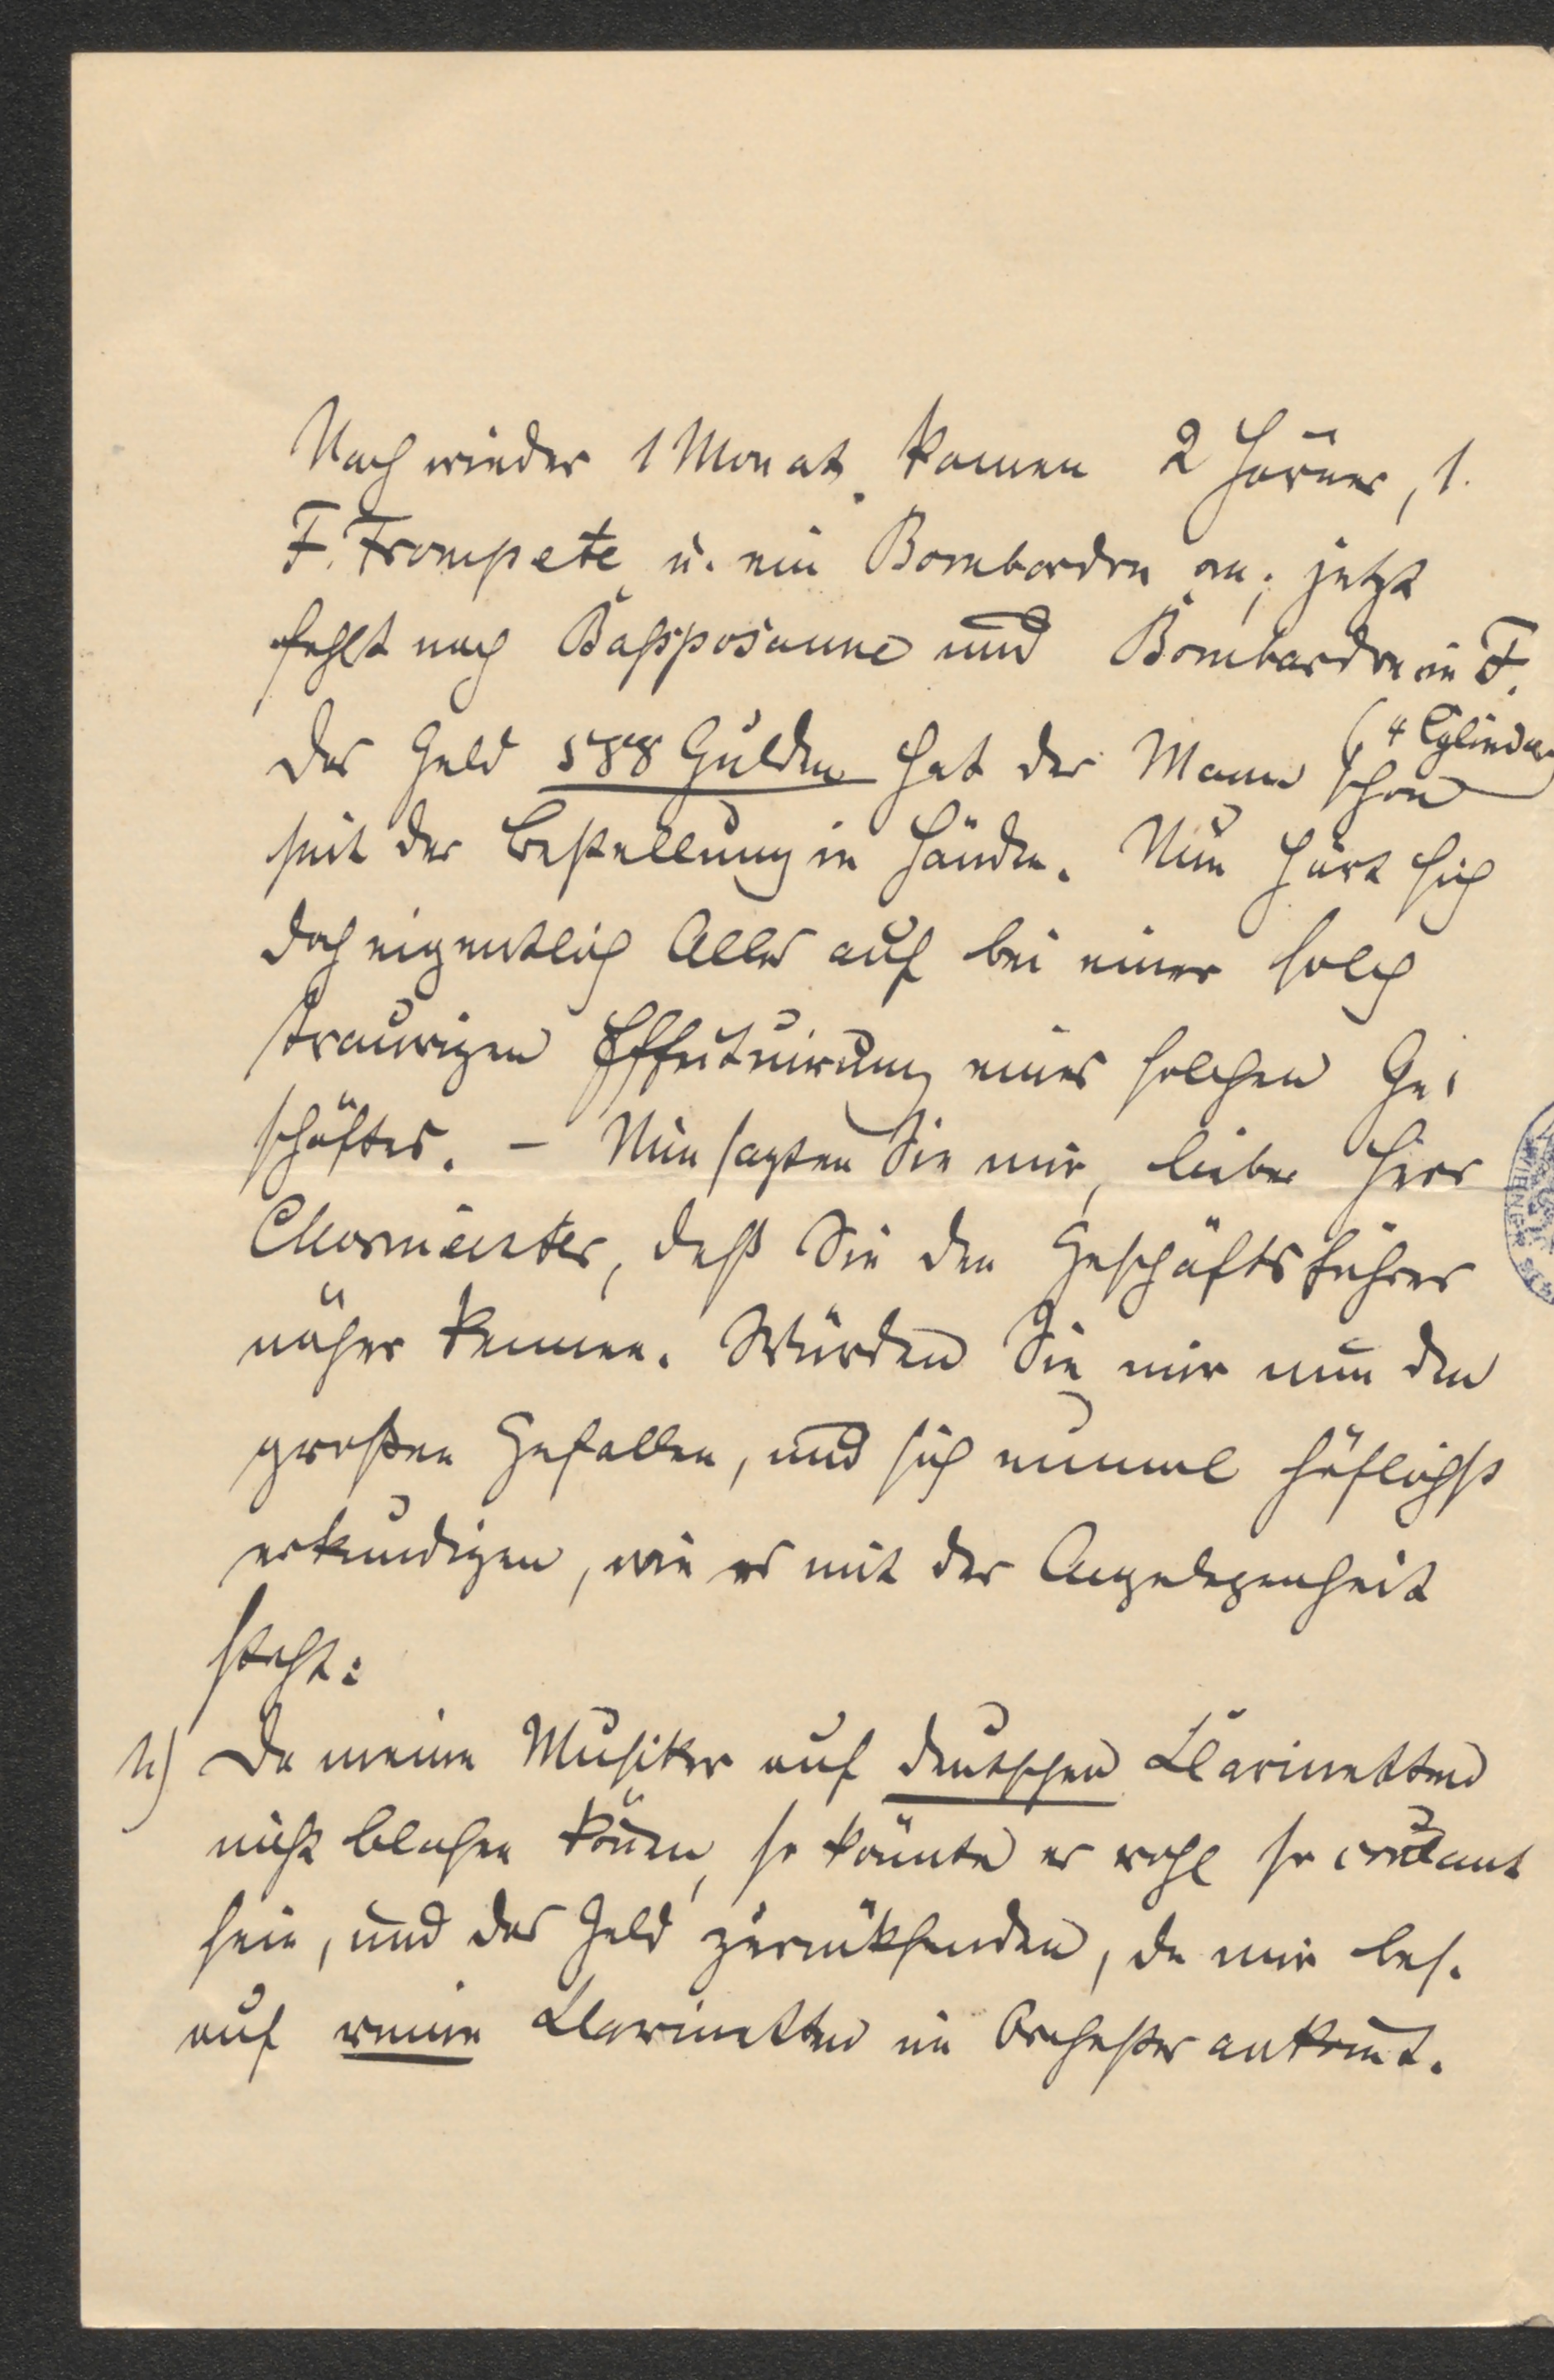 Nach wieder 1 Monat kamen 2 Hörner, 1.
F. Trompete u. ein Bombardon an; jetzt
fehlt noch Baßposaune und Bombardon in F.
(4 Cylinder)
Das Geld 588 Gulden hat der Mann schon
seit der Bestellung in Händen. Nun hört sich
doch eigentlich Alles auf bei einer solch
traurigen Effectuirung eines solchen Ge-
schäftes. – Nun sagten Sie mir, lieber Herr
Chormeister, daß Sie den Geschäftsführer
näher kennen. Würden Sie mir nun den
großen Gefallen, und sich einmal höflichst
erkundigen, wie es mit der Angelegenheit
steht:
Da meine Musiker auf deutschen Klarinetten
nicht blasen können, so könnte er wohl so coulant
sein, und das Geld zurücksenden, da mir bes.
auf reine Klarinetten im Orchester ankommt.
WIENER